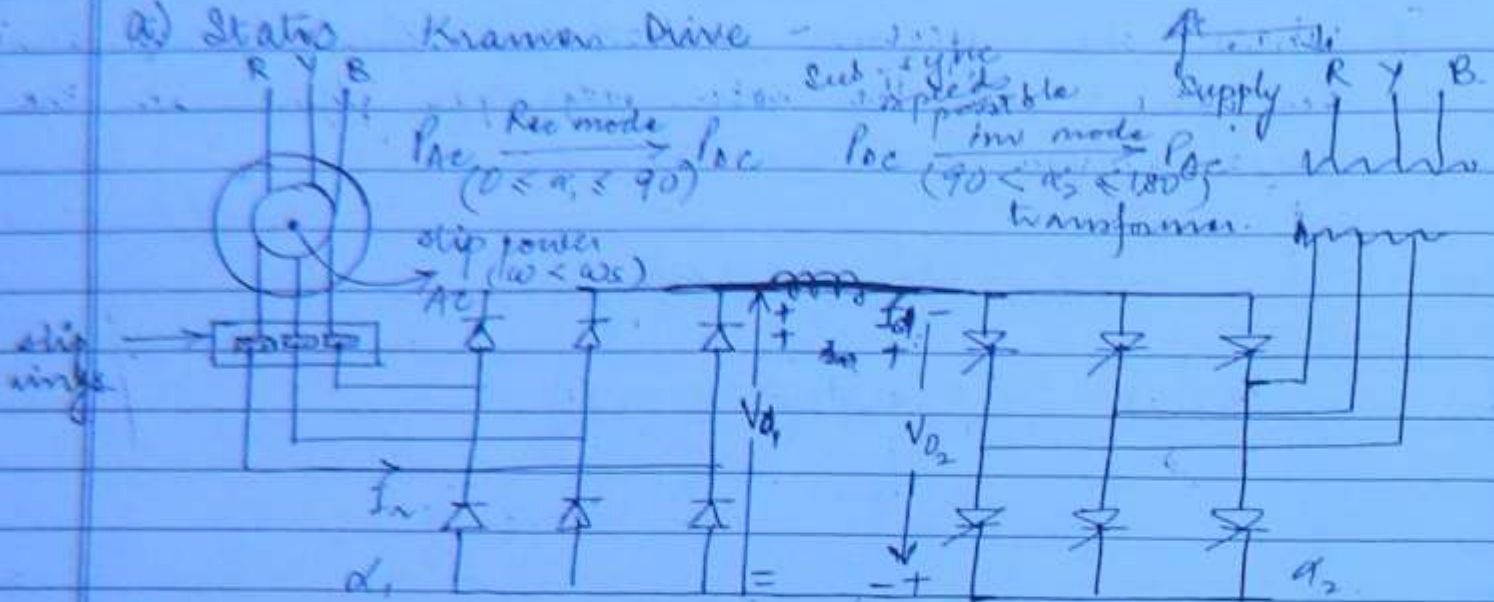 a) Static Kramer Drive -
R Y B
Sub-sync speed possible
Supply R Y B.
PAC Rec mode PDC PDC inv mode PAC
(0 ≤ α₁ ≤ 90) (90 < α₂ ≤ 180°)
transformer.
slip power
(ω < ωs)
AC
slip rings
+ Id -
+ +
Vd₁ VD₂
Ir
α₁ = - + α₂